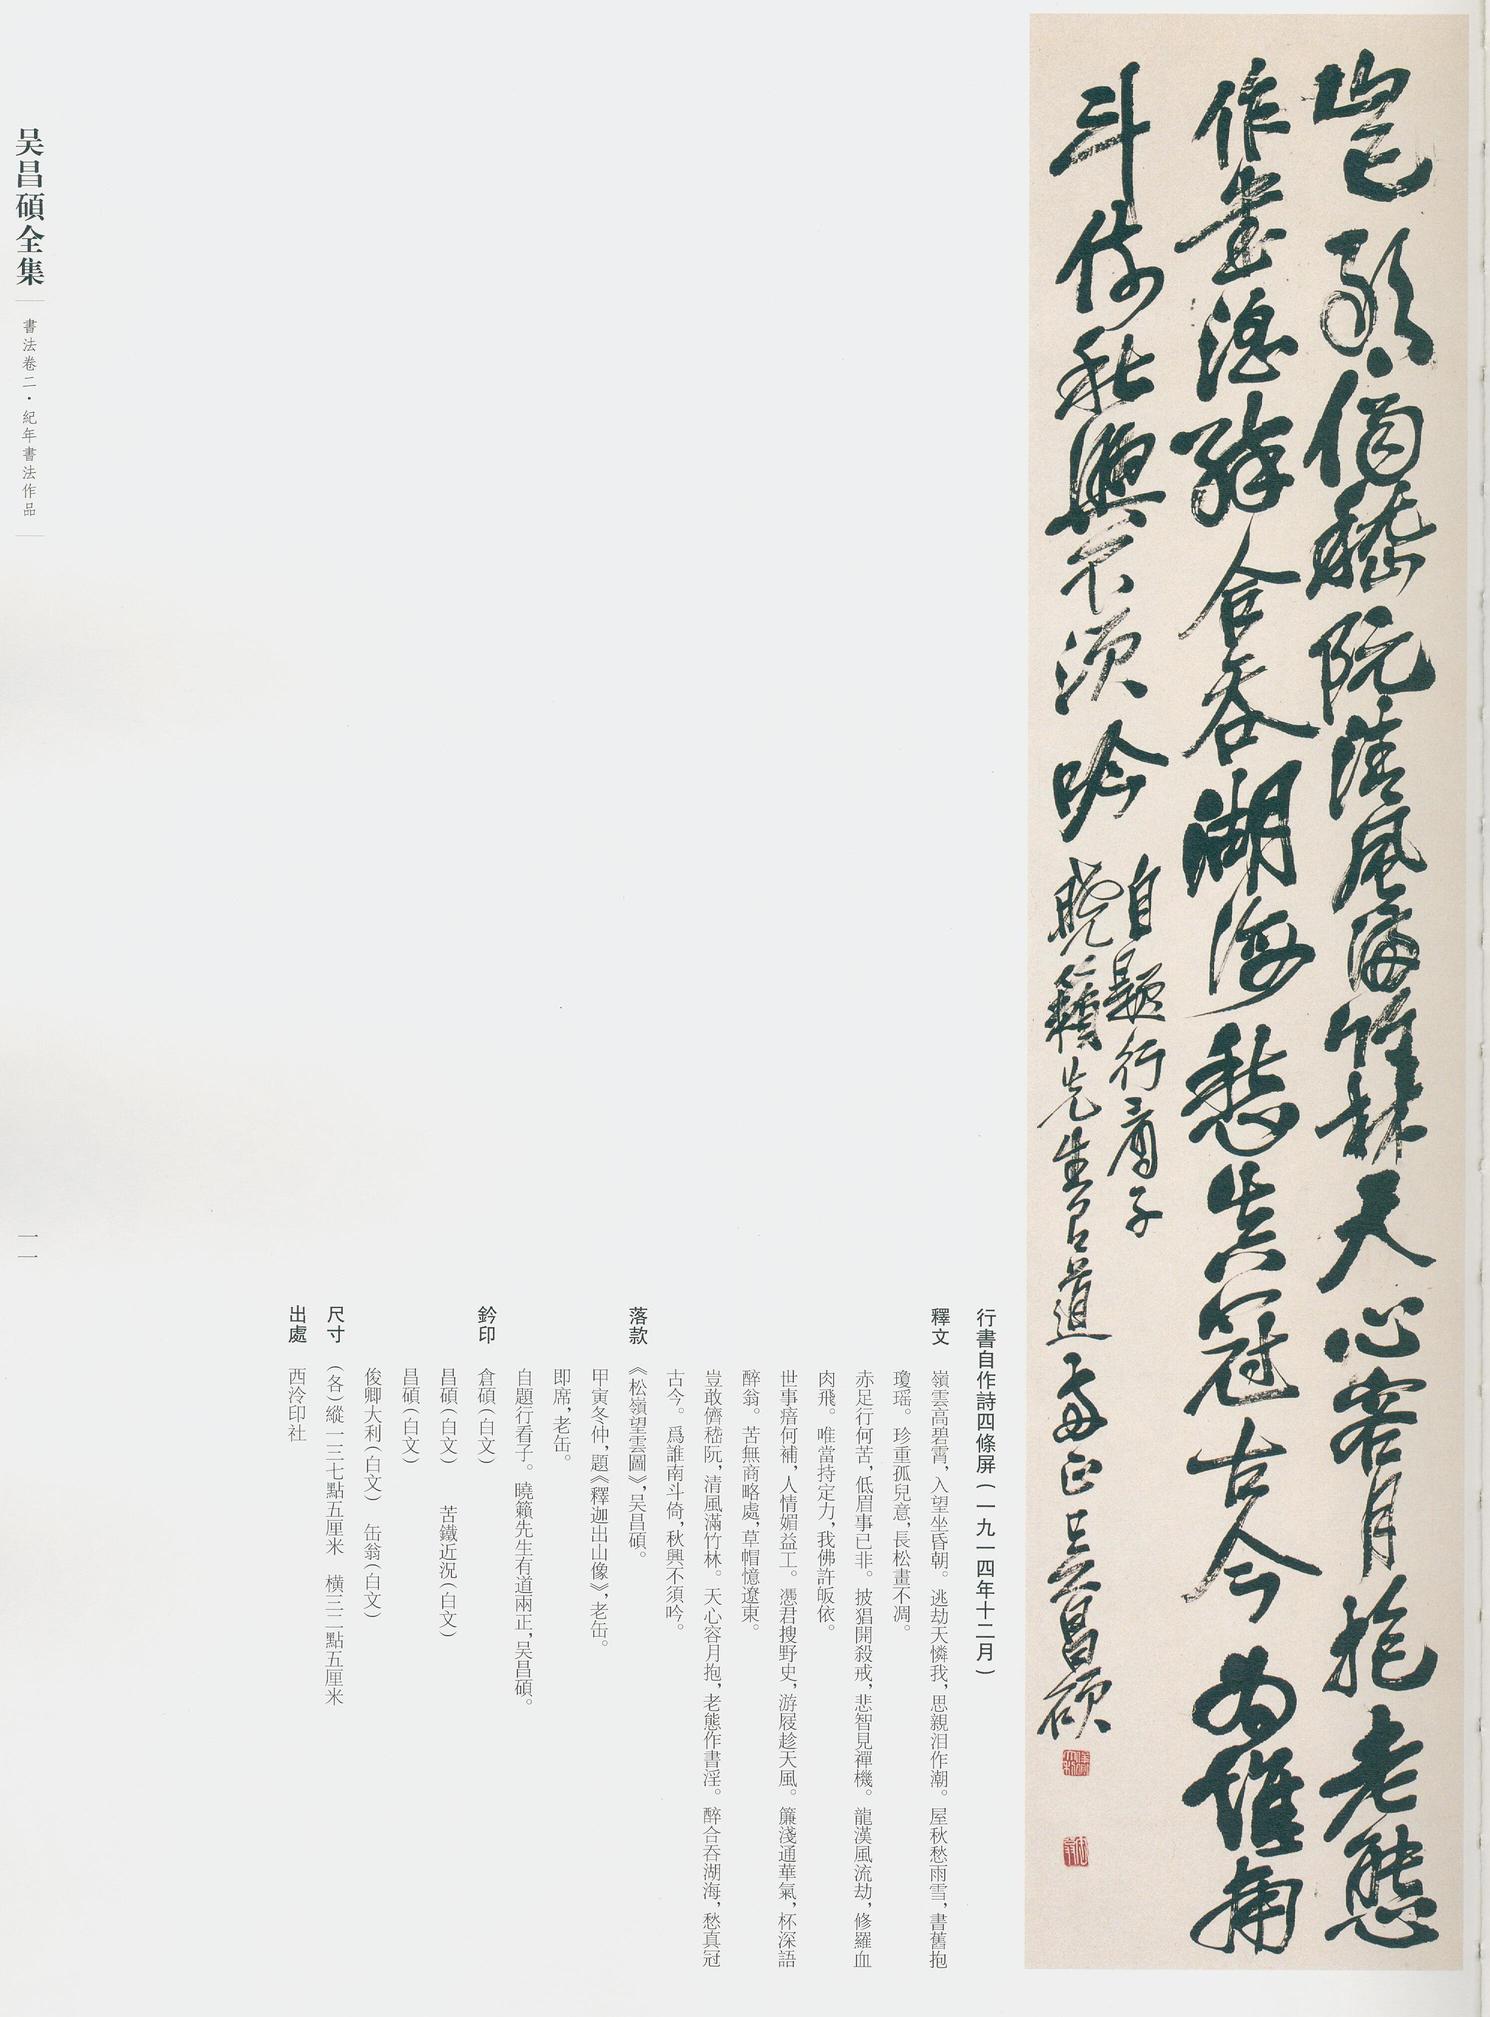 豈敢儕嵇阮清風滿竹林天心容月抱老態
作書淫醉合吞湖海愁真冠古今為誰南
斗倚秋興不須吟
自題行看子
曉籟先生有道兩正吳昌碩
行書自作詩四條屏(一九一四年十二月)
釋文 嶺雲高碧霄，入望坐昏朝。逃劫天憐我，思親泪作潮。屋秋愁雨雪，書舊抱
瓊瑶。珍重孤兒意，長松畫不凋。
赤足行何苦，低眉事已非。披猖開殺戒，悲智見禪機。龍漢風流劫，修羅血
肉飛。唯當持定力，我佛許皈依。
世事瘖何補，人情媚益工。憑君搜野史，游屐趁天風。簾淺通華氣，杯深語
醉翁。苦無商略處，草帽憶遼東。
豈敢儕嵇阮，清風滿竹林。天心容月抱，老態作書淫。醉合吞湖海，愁真冠
古今。爲誰南斗倚，秋興不須吟。
落款 《松嶺望雲圖》，吴昌碩。
甲寅冬仲，題《釋迦出山像》，老缶。
即席，老缶。
自題行看子。曉籟先生有道兩正，吴昌碩。
鈐印 倉碩(白文)
昌碩(白文) 苦鐵近況(白文)
昌碩(白文)
俊卿大利(白文) 缶翁(白文)
尺寸 (各)縱一三七點五厘米 橫三二點五厘米
出處 西泠印社
吴昌碩全集
書法卷二·紀年書法作品
一一